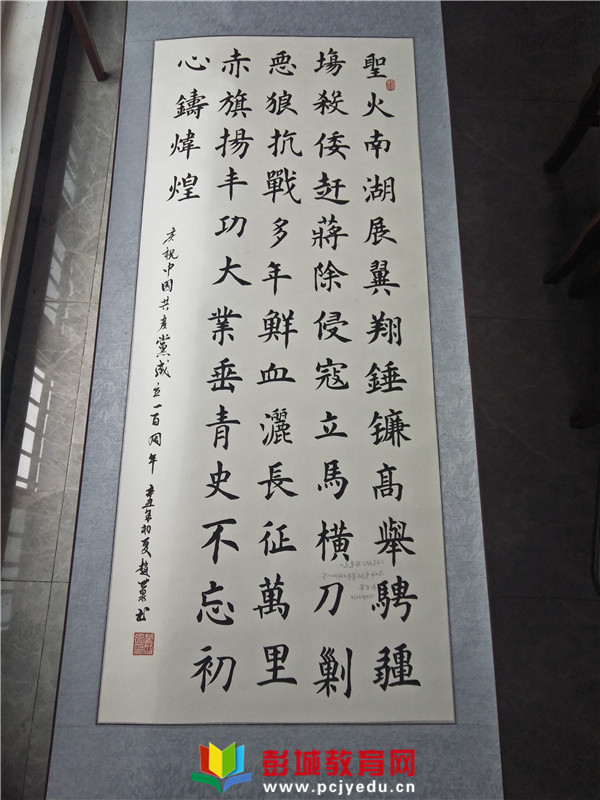 聖火南湖展翼翔錘镰高舉騁疆
塲殺倭赶蔣除侵寇立馬橫刀剿
恶狼抗戰多年鮮血灑長征萬里
赤旗揚丰功大業垂青史不忘初
心鑄煒煌
庆祝中國共産黨成立一百周年 辛丑年初夏趙 书
彭城教育网
www.pcjyedu.cn